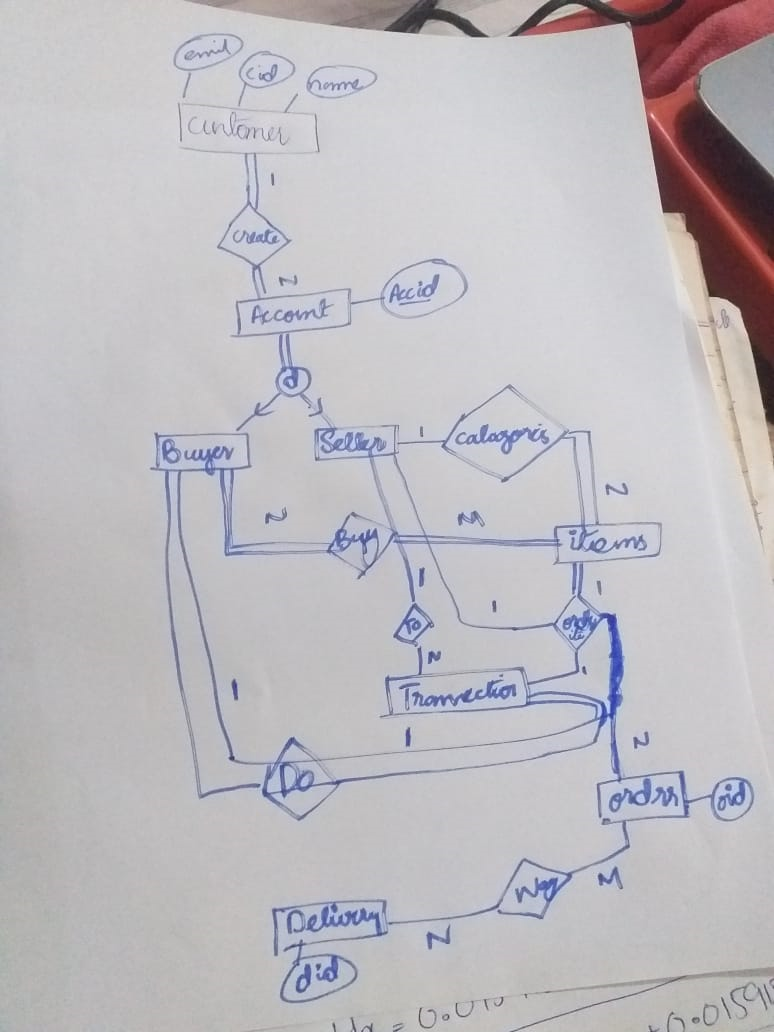 emil
Cid
name
Customer
1
Create
N
Account
Accid
d
Buyer
Seller
1
Catagoris
N
N
Buy
M
items
1
1
1
To
N
1
Transection
1
1
N
Do
ordrs
oid
Way
M
Delivery
N
did